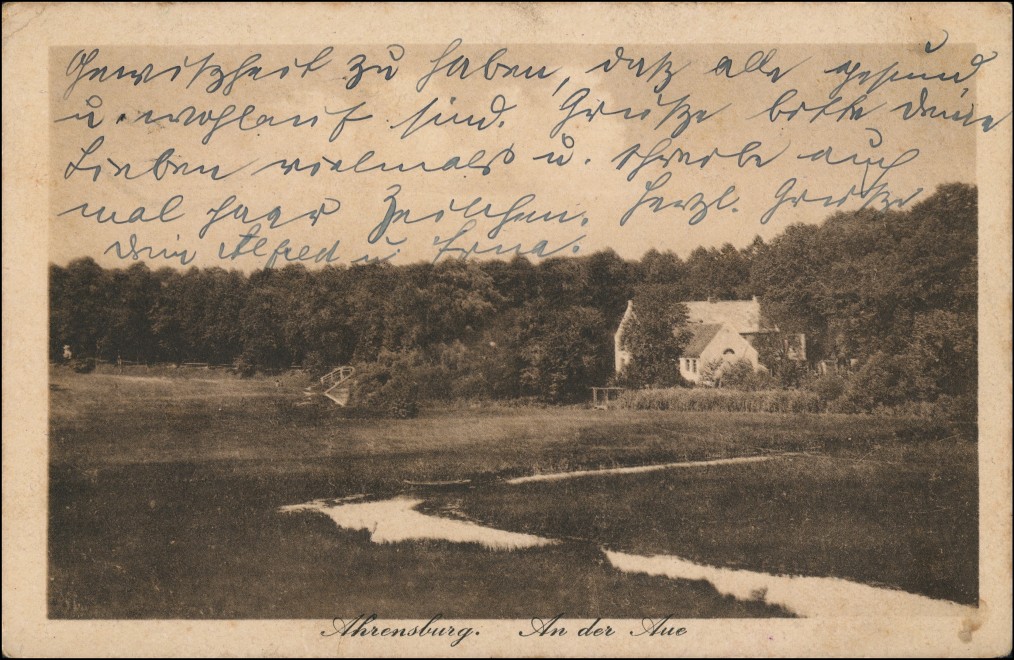 Gewißheit zu haben, daß alle gesund
u. wohlauf sind. Grüße bitte deine
Lieben vielmals u. schreibe auch
mal paar Zeilchen. Herzl. Grüße
Dein Alfred u. Erna.
Ahrensburg. An der Aue